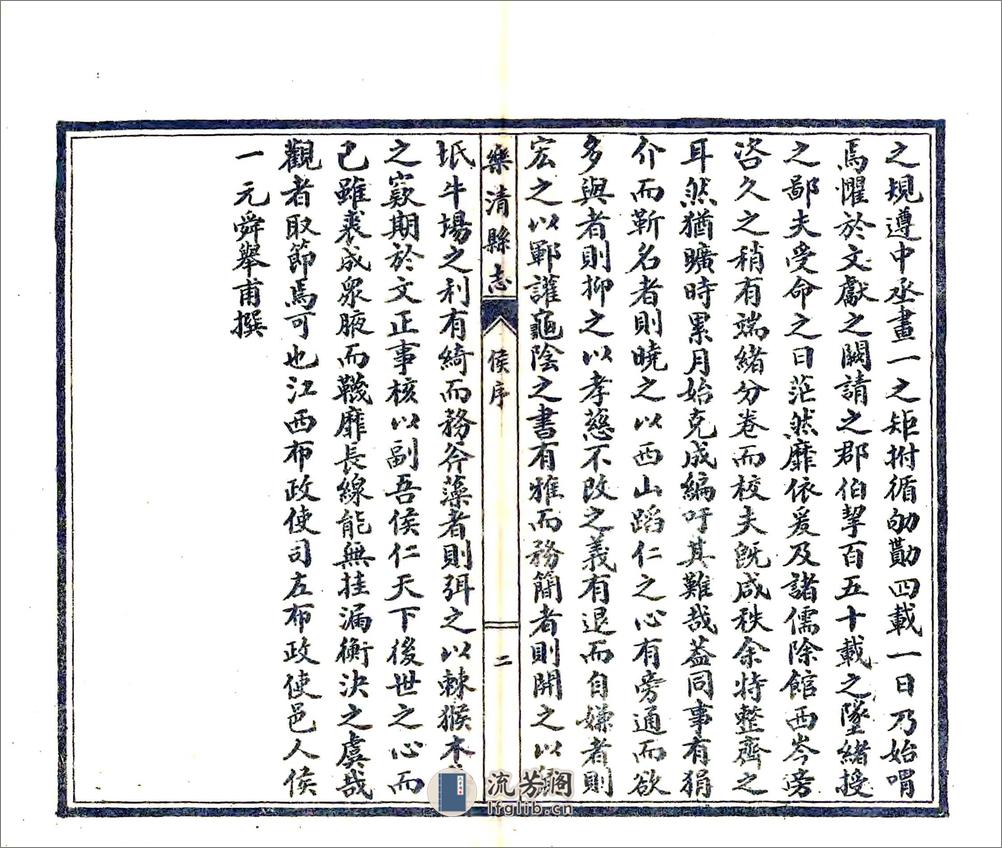 之規遵中丞畫一之矩拊循劬勩四載一日乃始喟
焉懼於文獻之闕請之郡伯挈百五十載之墜緒授
之鄙夫受命之日茫然靡依爰及諸儒除館西岑旁
咨久之稍有端緒分卷而校夫既咸秩余特整齊之
耳然猶曠時累月始克成編吁其難哉蓋同事有狷
介而靳名者則曉之以西山蹈仁之心有旁通而欲
多與者則抑之以孝慈不改之義有退而自嫌者則
宏之以鄆讙龜陰之書有雅而務簡者則開之以
坻牛場之利有綺而務斧藻者則弭之以棘猴木
之窾期於文正事核以副吾侯仁天下後世之心而
已雖裘成眾腋而韈靡長線能無挂漏衡決之虞哉
觀者取節焉可也江西布政使司左布政使邑人侯
一元舜舉甫撰
樂清縣志
侯序
二
流芳閣
lfglib.cn